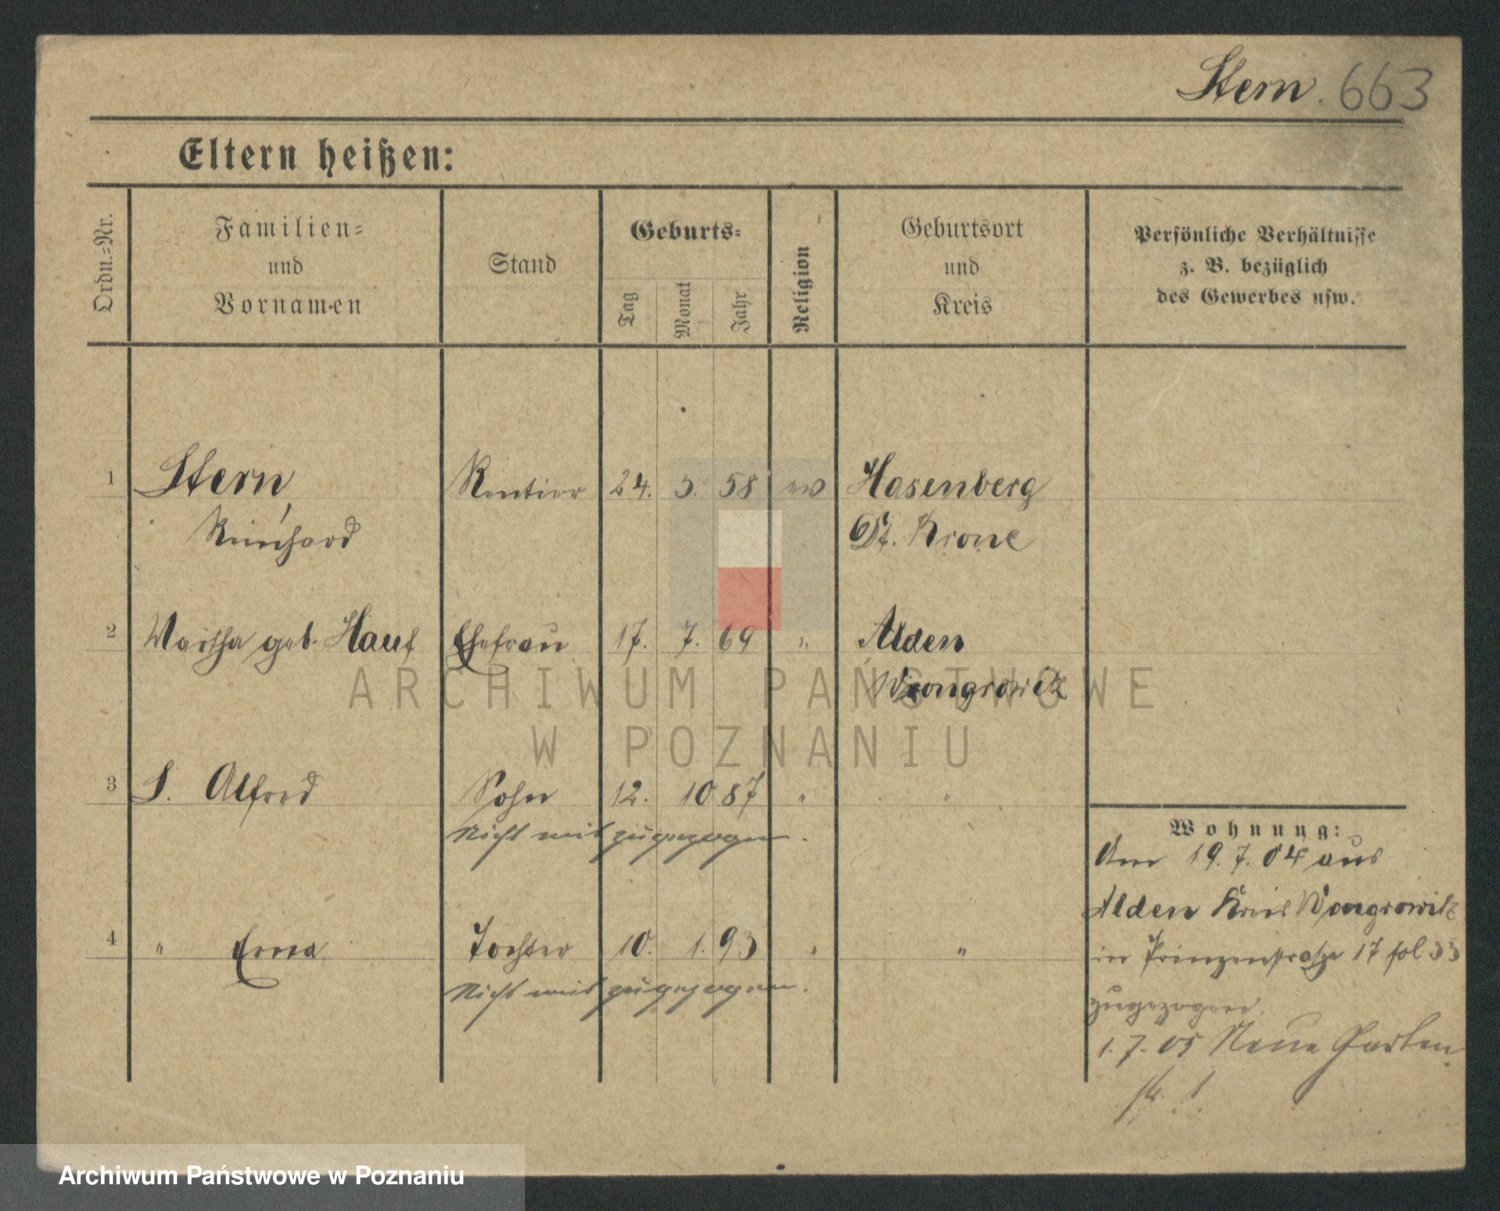 Stern. 663
Eltern heißen:
Ordn.-Nr.
Familien-
und
Vornamen
Stand
Geburts-
Tag
Monat
Jahr
Religion
Geburtsort
und
Kreis
Persönliche Verhältnisse
z. B. bezüglich
des Gewerbes usw.
1 Stern, Rentier 24. 3. 58 ev Hasenberg
Reinhard Dt. Krone
2 Martha geb. Hauf Ehefrau 17. 7. 69 " Alden
Wongrowitz
3 S. Alfred Sohn 12. 10 87 " "
Nicht mit zugezogen.
4 " Erna Tochter 10. 1. 93 " "
Nicht mit zugezogen.
Wohnung:
Am 19. 7. 04 aus
Alden Kreis Wongrowitz
in Prinzenstraße 17 fol 33
zugezogen.
1. 7. 05 Neue Garten
str. 1
ARCHIWUM PAŃSTWOWE
W POZNANIU
Archiwum Państwowe w Poznaniu